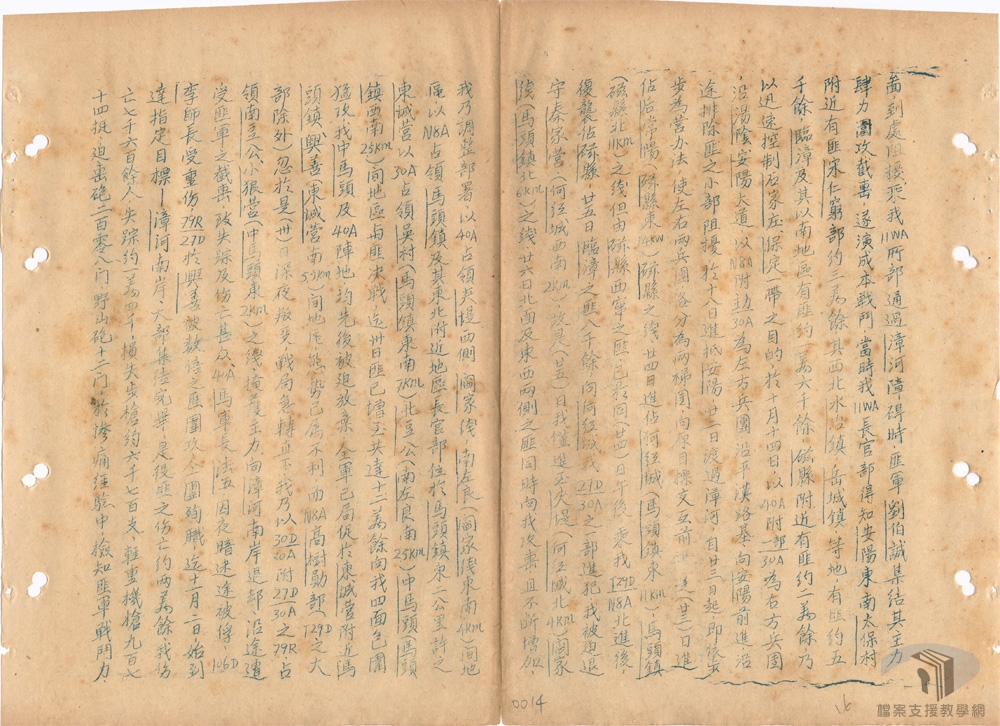 面到處阻擾乘我11WA所部通過漳河障碍時,匪軍劉伯誠集結其主力
肆力圍攻截擊遂演成本戰鬥當時我11WA長官部得知安陽東南太保村
附近有匪宋仁窮部約三萬餘其西北水冶鎮岳城鎮等地,有匪約五
千餘,臨漳及其以南地區有匪約一萬六千餘,磁縣附近有匪約二萬餘乃
以迅速控制石家庄保定一帶之目的於十月十四日以40A附一部30A為右方兵團
沿湯陰安陽大道以N8A附30A為左方兵團沿平漢路基向安陽前進沿
途排除匪之小部阻擾於十八日進抵安陽廿二日渡過漳河自廿三日起即依步
步為營办法,使左右兩兵團各分為兩梯團向原目標交互前進(廿三)日進
佔后常陽磁縣東14km磁縣之綫廿四日進佔河經城(馬頭鎮東11km)馬頭鎮
(磁縣北11km)之綫但由磁縣西竄之匪已於同(廿四)日午後,乘我T29D N8A北進後,
復襲佔磁縣,廿五日臨漳之匪八千餘向河經城我27D 30A之一部進犯我被迫退
守秦家營(何經城西南2km)次是(廿五)日我僅進至大堤(何經城北4km)閻家
綫(馬頭鎮北6km)之綫廿六日北面及東西兩側之匪同時向我攻擊且不斷增加,
我乃調整部署以40A占領夾堤西側閻家綫南左良(閻家淺東南4km)間地
區以N8A占領馬頭鎮及其東北附近地區長官部位於馬頭鎮東二公里許之
東诚營以30A占領吳村(馬頭鎮東南7km)北豆公(南左良南25km)中馬頭(馬頭
鎮西南25km)間地區与匪決戰,迄卅日匪已增至共達十二萬餘向我四面包圍
猛攻我中馬頭及40A陣地均先後被迫放棄全軍已局促於東诚營附近馬
頭鎮,興善(東诚營南5.5km)間地區態勢已屬不利而N8A高樹勳部(T29D之大
部除外)忽於是(卅)日深夜叛变,戰局急轉直下我乃以30D 40A附27D 30A之79R占
領南豆公小狼營(中馬頭東2km)之綫,掩護主力,向漳河南岸退却沿途遭
受匪軍之截擊致失踪及伤亡甚众,40A馬軍長法五因夜暗迷途被俘,106D
李師長受重伤79R 27D於興善被数倍之匪圍攻全團殉職,迄十一月二日,始到
達指定目標—漳河南岸,大部集結完畢是役匪之伤亡約兩萬餘我伤
亡七千六百餘人,失踪約一萬四千,損失步槍約六千七百支,輕重機槍九百七
十四挺迫击砲二百零八门野山砲十二门,於慘痛經驗中檢知匪軍戰鬥力,
0014
檔案支援教學網